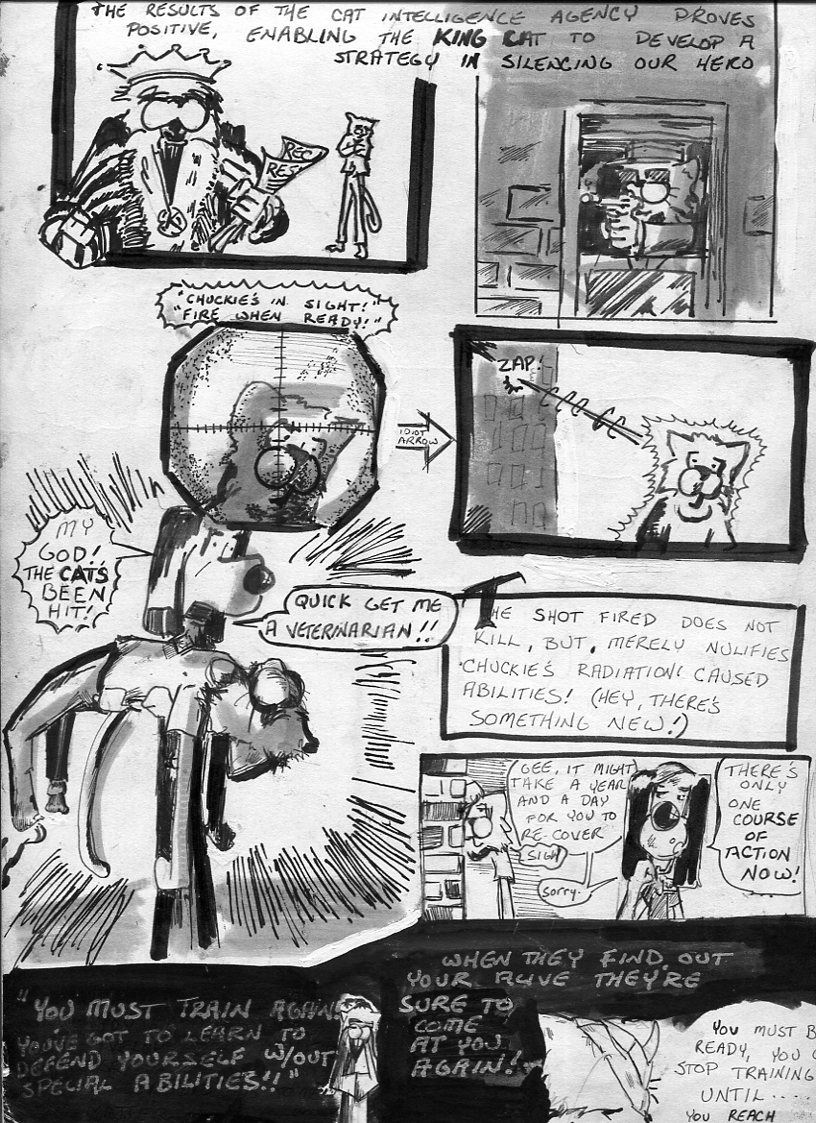 THE RESULTS OF THE CAT INTELLIGENCE AGENCY PROVES
POSITIVE, ENABLING THE KING CAT TO DEVELOP A
STRATEGY IN SILENCING OUR HERO
REC
RES
"CHUCKIE'S IN SIGHT!"
FIRE WHEN READY!"
IDIOT
ARROW
ZAP
MY
GOD!
THE CAT'S
BEEN
HIT!
QUICK GET ME
A VETERINARIAN!!
THE SHOT FIRED DOES NOT
KILL, BUT, MERELY NULIFIES
CHUCKIE'S RADIATION CAUSED
ABILITIES! (HEY, THERE'S
SOMETHING NEW!)
GEE, IT MIGHT
TAKE A YEAR
AND A DAY
FOR YOU TO
RE-COVER
SIGH
SORRY.
THERE'S
ONLY
ONE
COURSE
OF
ACTION
NOW!
"YOU MUST TRAIN AGAIN
YOU'VE GOT TO LEARN TO
DEFEND YOURSELF W/OUT
SPECIAL ABILITIES!!"
WHEN THEY FIND OUT
YOUR ALIVE THEY'RE
SURE TO
COME
AT YOU
AGAIN!
YOU MUST B
READY, YOU C
STOP TRAINING
UNTIL.....
YOU REACH